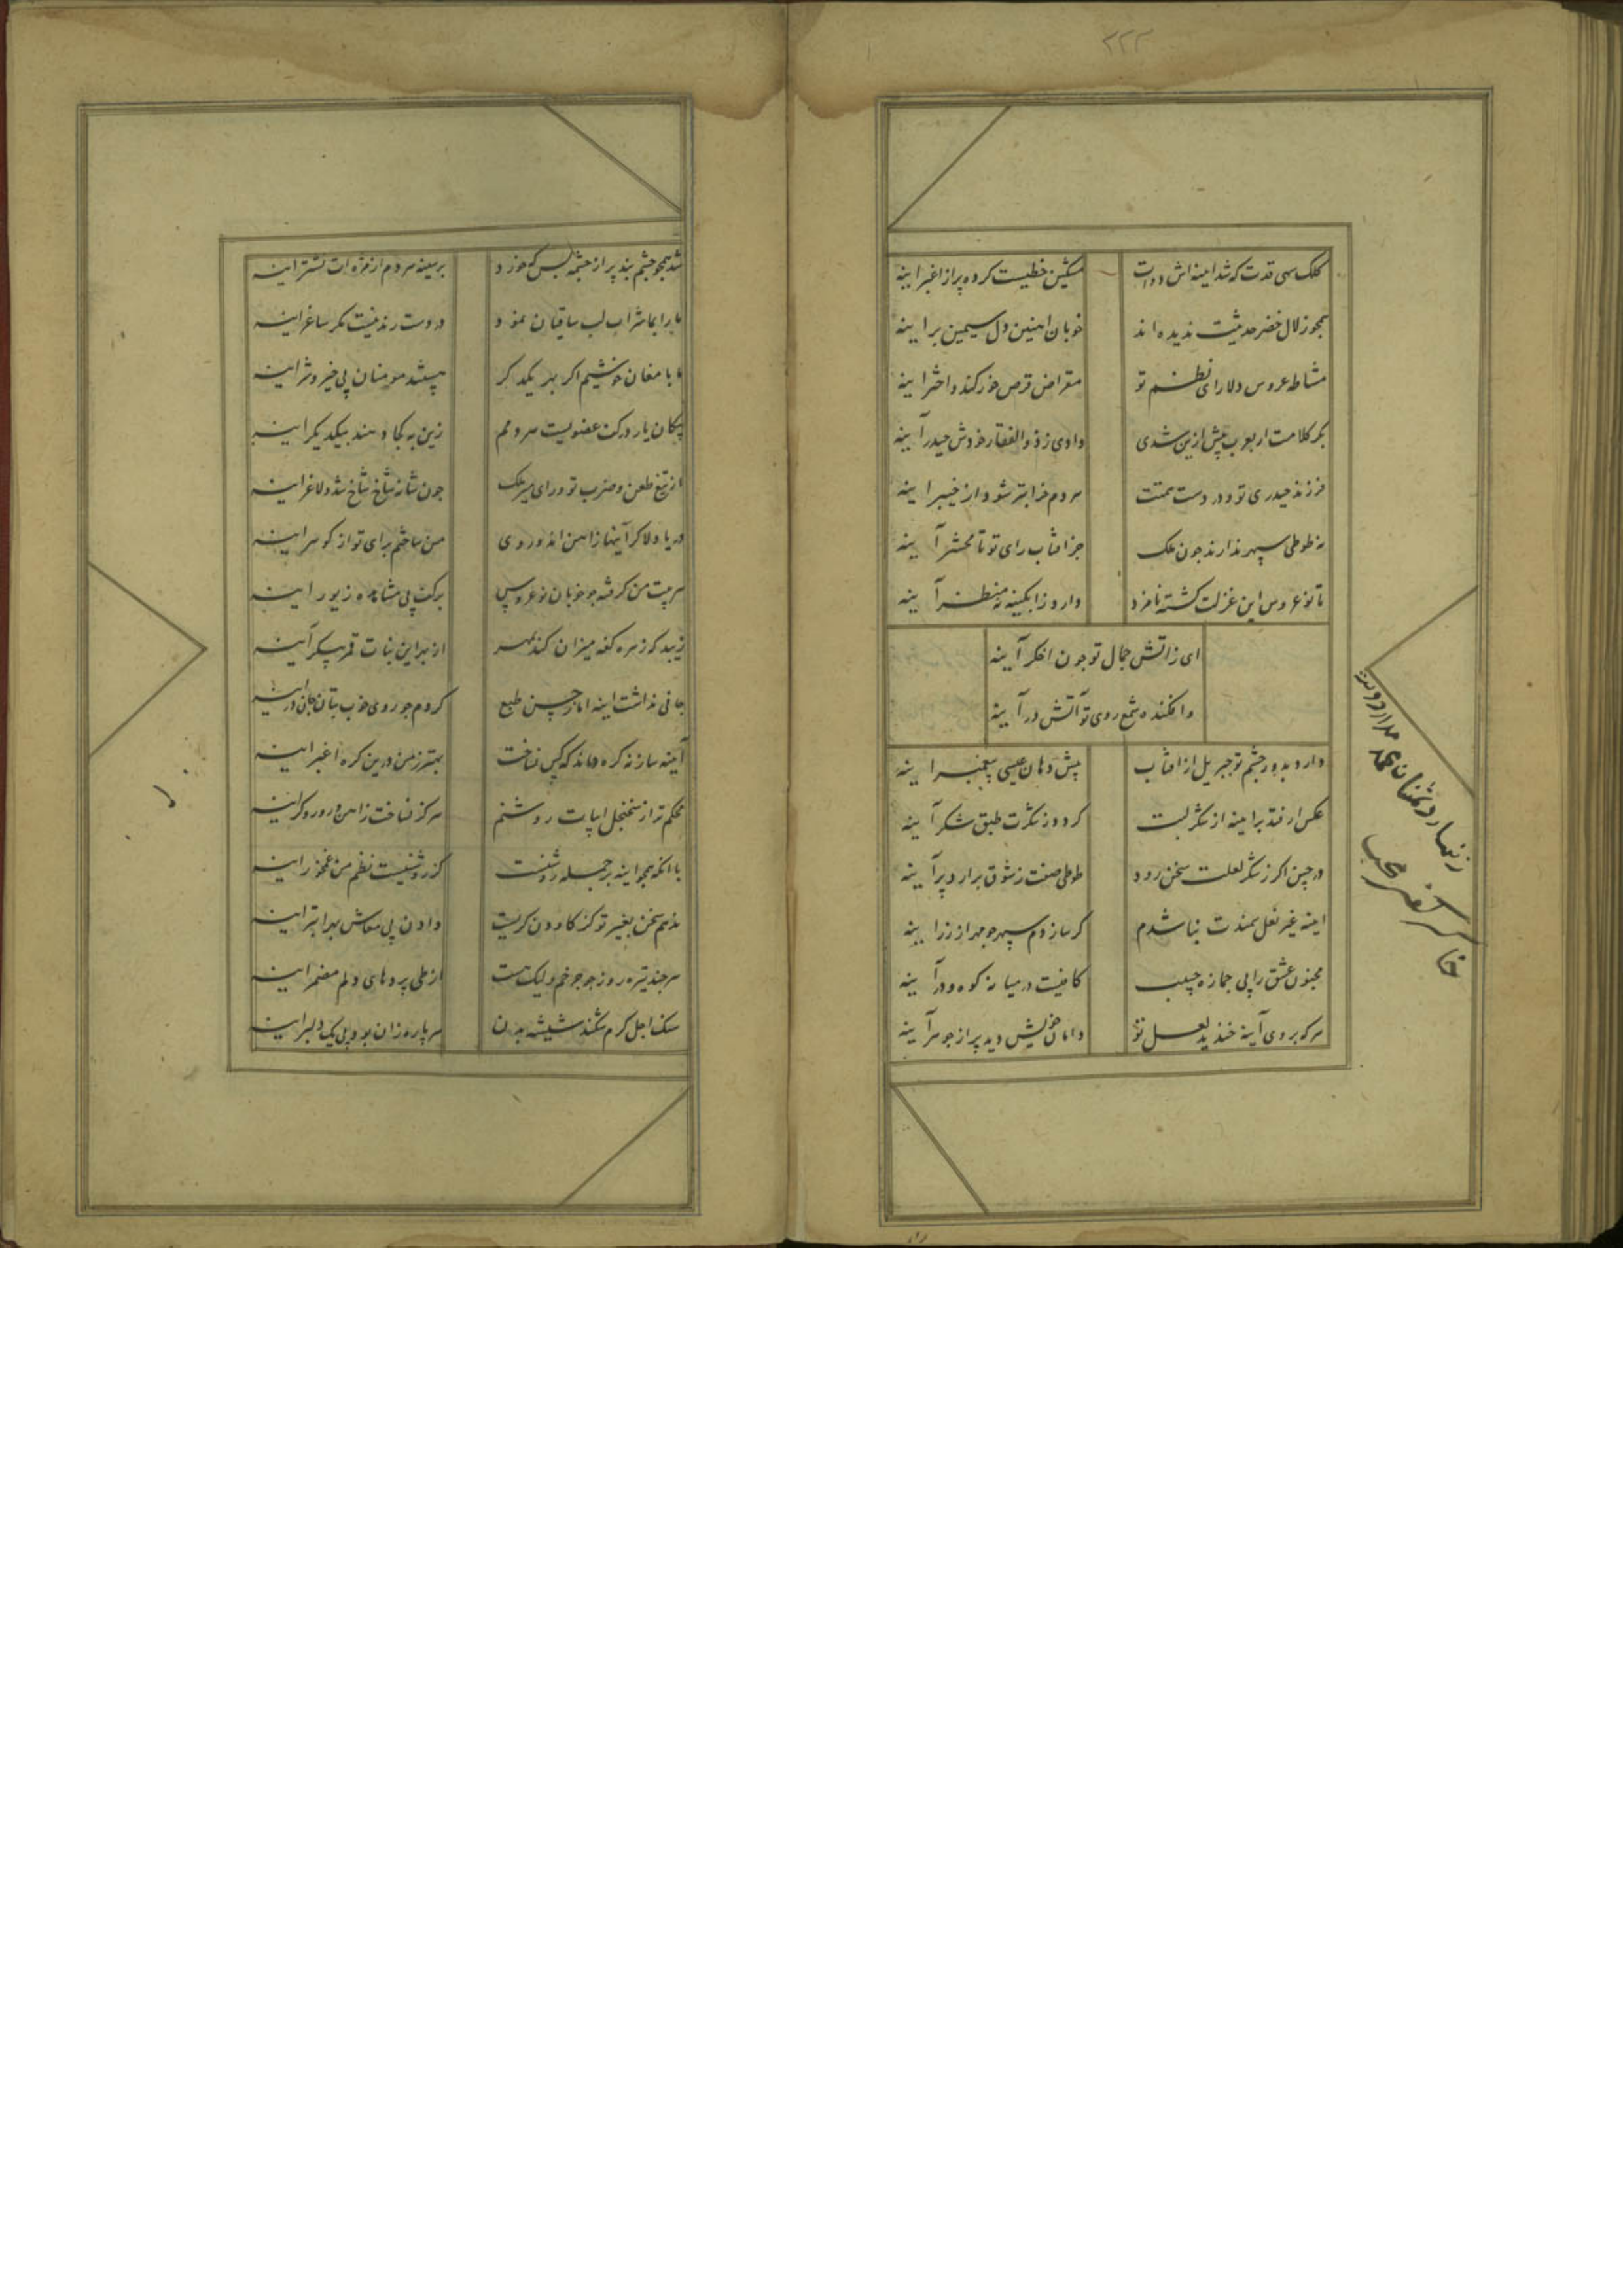 ۲۲۲
کلک سهی قدت که شد امینه اش دوات مشکین خطیست کرده پر از اغبر اینه
همچو زلال خضر حدیثت ندیده اند خوبان اهنین دل سیمین بر اینه
مشاطه عروس دلارای نظم تو مقراض قرص خور کند و اختر اینه
بکر کلامت ار بعرب پیش ازین شدی دادی ز ذوالفقار خودش حیدر آینه
فرزند حیدری تو و در دست همتت مردم خرابتر شود از خیبر اینه
نه طوطی سپهر ندارند چون ملک جز افتاب رای تو تا محشر آینه
تا نو عروس این غزلت کشته نامزد دارد ز ابکینه نه منظر آینه
ای زاتش جمال تو چون اخکر آینه
وافکنده شمع روی تو آتش در آینه
دارد بدور چشم تو جبریل از افتاب پیش دهان عیسی پیغمبر اینه
عکس ار فتد بر اینه از شکر لبت کردد ز شکرت طبق شکر آینه
در چین اکر ز شکر لعلت سخن رود طوطی صفت ز شوق برارد پر آینه
اینه غیر نعل سمندت نباشدم کر سازدم سپهر چو مهر از زر اینه
مجنون عشق را پی جمازه حبیب کافیست در میانه کوه و در آینه
هر که بروی آینه خندید لعل تو دامان خویش دید پر از جوهر آینه
شد همچو چشم بند پر از چشمه بس که خورد بر سینه مردم از مژه ات نشتر اینه
ما را بما شراب لب ساقیان نمود در دست رند نیست مکر ساغر اینه
ما با مغان خوشیم اکر بهر یکدکر
پیکان یار در کف عضویست مرد مم زین به کجا دهند بیکدیکر اینه
از تیغ طعن و ضرب تو و رای میر ملک چون شانه شاخ شاخ شد و لاغر اینه
دریا دلا کر آینها زاهن اند و روی من ساختم برای تو از کوهر اینه
هر بیت من کرفته چو خوبان نو عروس بر کف پی مشاهده زیور اینه
زیبد که زهره کفه میزان کند بمهر از بهر این بنات قمر پیکر آینه
جانی نداشت اینه اما ز حسن طبع کردم چو روی خوب بتان جان در اینه
آینه ساز نه کره داند که کس نساخت بهتر ز من درین کره اغبر اینه
محکم تر از سجنجل ابیات روشنم هرکز نساخت زاهن و رو روکر اینه
با انکه همچو اینه بر جمله روشنست کز روشنیست نظم من غمخور اینه
ندهم سخن بغیر تو کز کاو دن کریست دادن پی معاش بهر ابتر اینه
هر چند تیره روز چو چرخم ولیک هست از طی پردهای دلم مضمر اینه
سنک اجل کرم شکند شیشه بدن هر پاره زان بود پی یک دلبر اینه